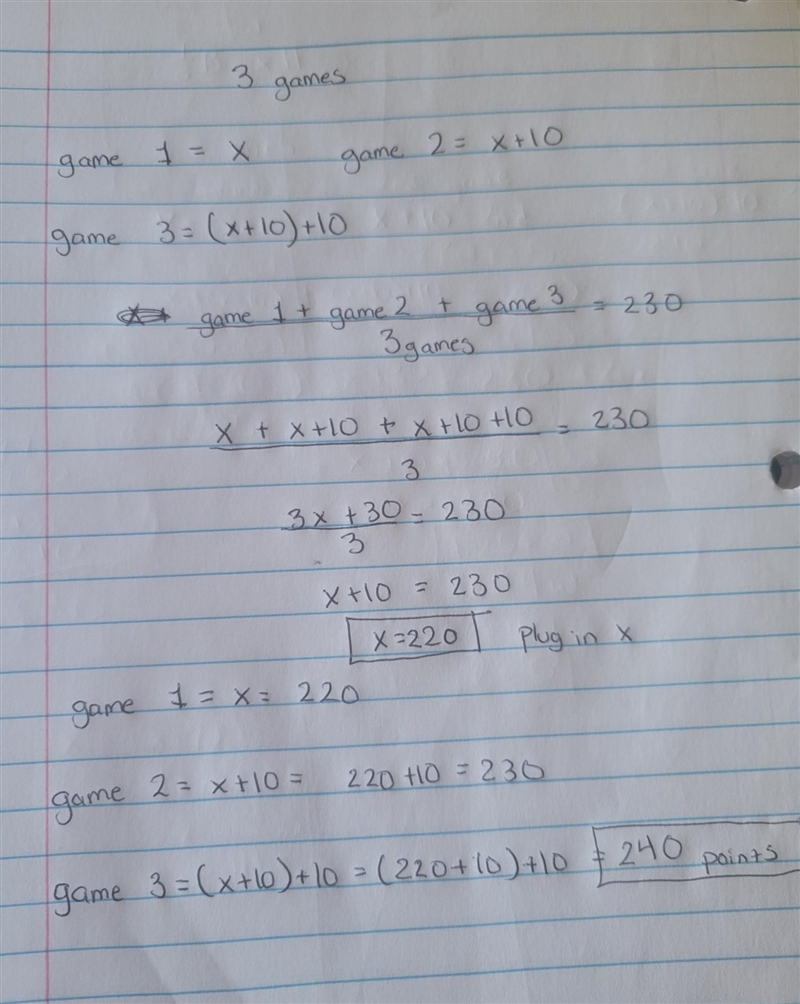 3 games
game 1 = x game 2 = x+10
game 3=(x+10)+10
game 1 + game 2 + game 3 = 230
3games
x + x+10 + x+10+10 = 230
3
3x +30 = 230
3
x+10 = 230
x=220 plug in x
game 1 = x = 220
game 2 = x+10 = 220+10 = 230
game 3=(x+10)+10=(220+10)+10 = 240 points